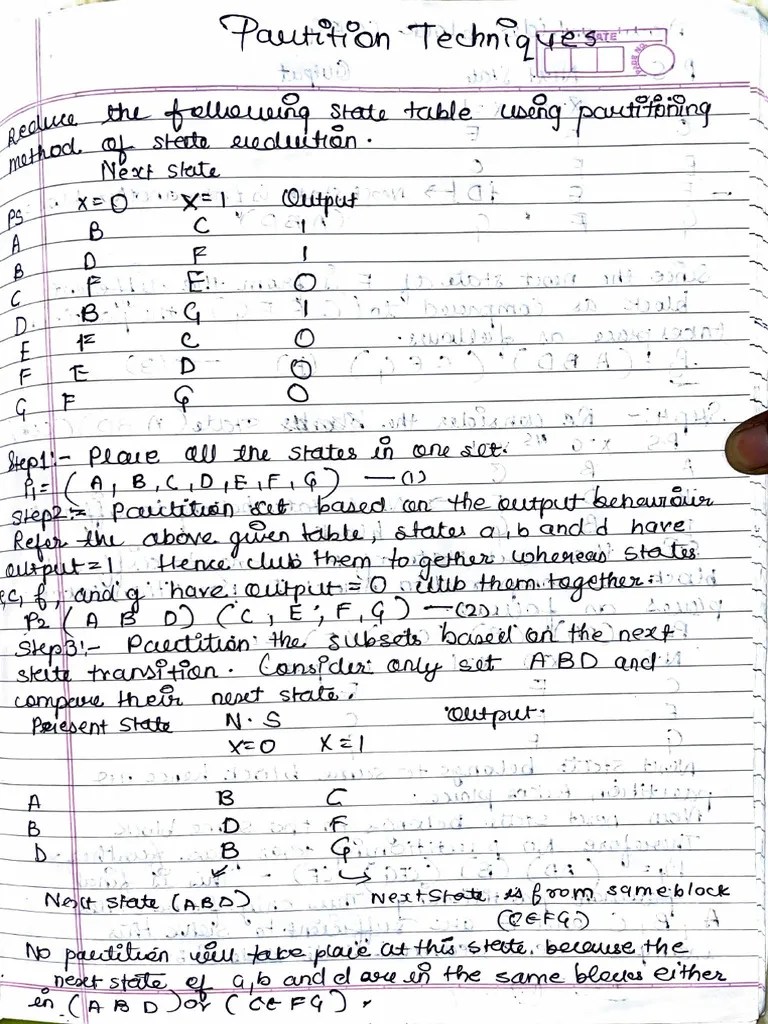 Partition Techniques
DATE
Reduce the following state table using partitioning
method of state reduction.
Next state
PS X=0 X=1 Output
A B C 1
B D F 1
C F E 0
D. B G 1
E F C 0
F E D 0
G F G 0
Step1:- Place all the states in one set.
P1= (A, B, C, D, E, F, G) —(1)
Step2:= Partition set based on the output behaviour
Refer the above given table, states a, b and d have
output=1 Hence club them together whereas states
e,c, f, and g have output = 0 club them together.
P2 (A B D) (C, E, F, G) —(2)
Step3:- Partition the subsets based on the next
state transition. Consider only set ABD and
compare their next state.
Present State N.S Output.
X=0 X=1
A B C
B D F
D. B G
Next state (ABD) Next State is from same block
(CEFG)
No partition will take place at this state because the
next state of a, b and d are in the same blocks either
in (A B D) or (CE FG).